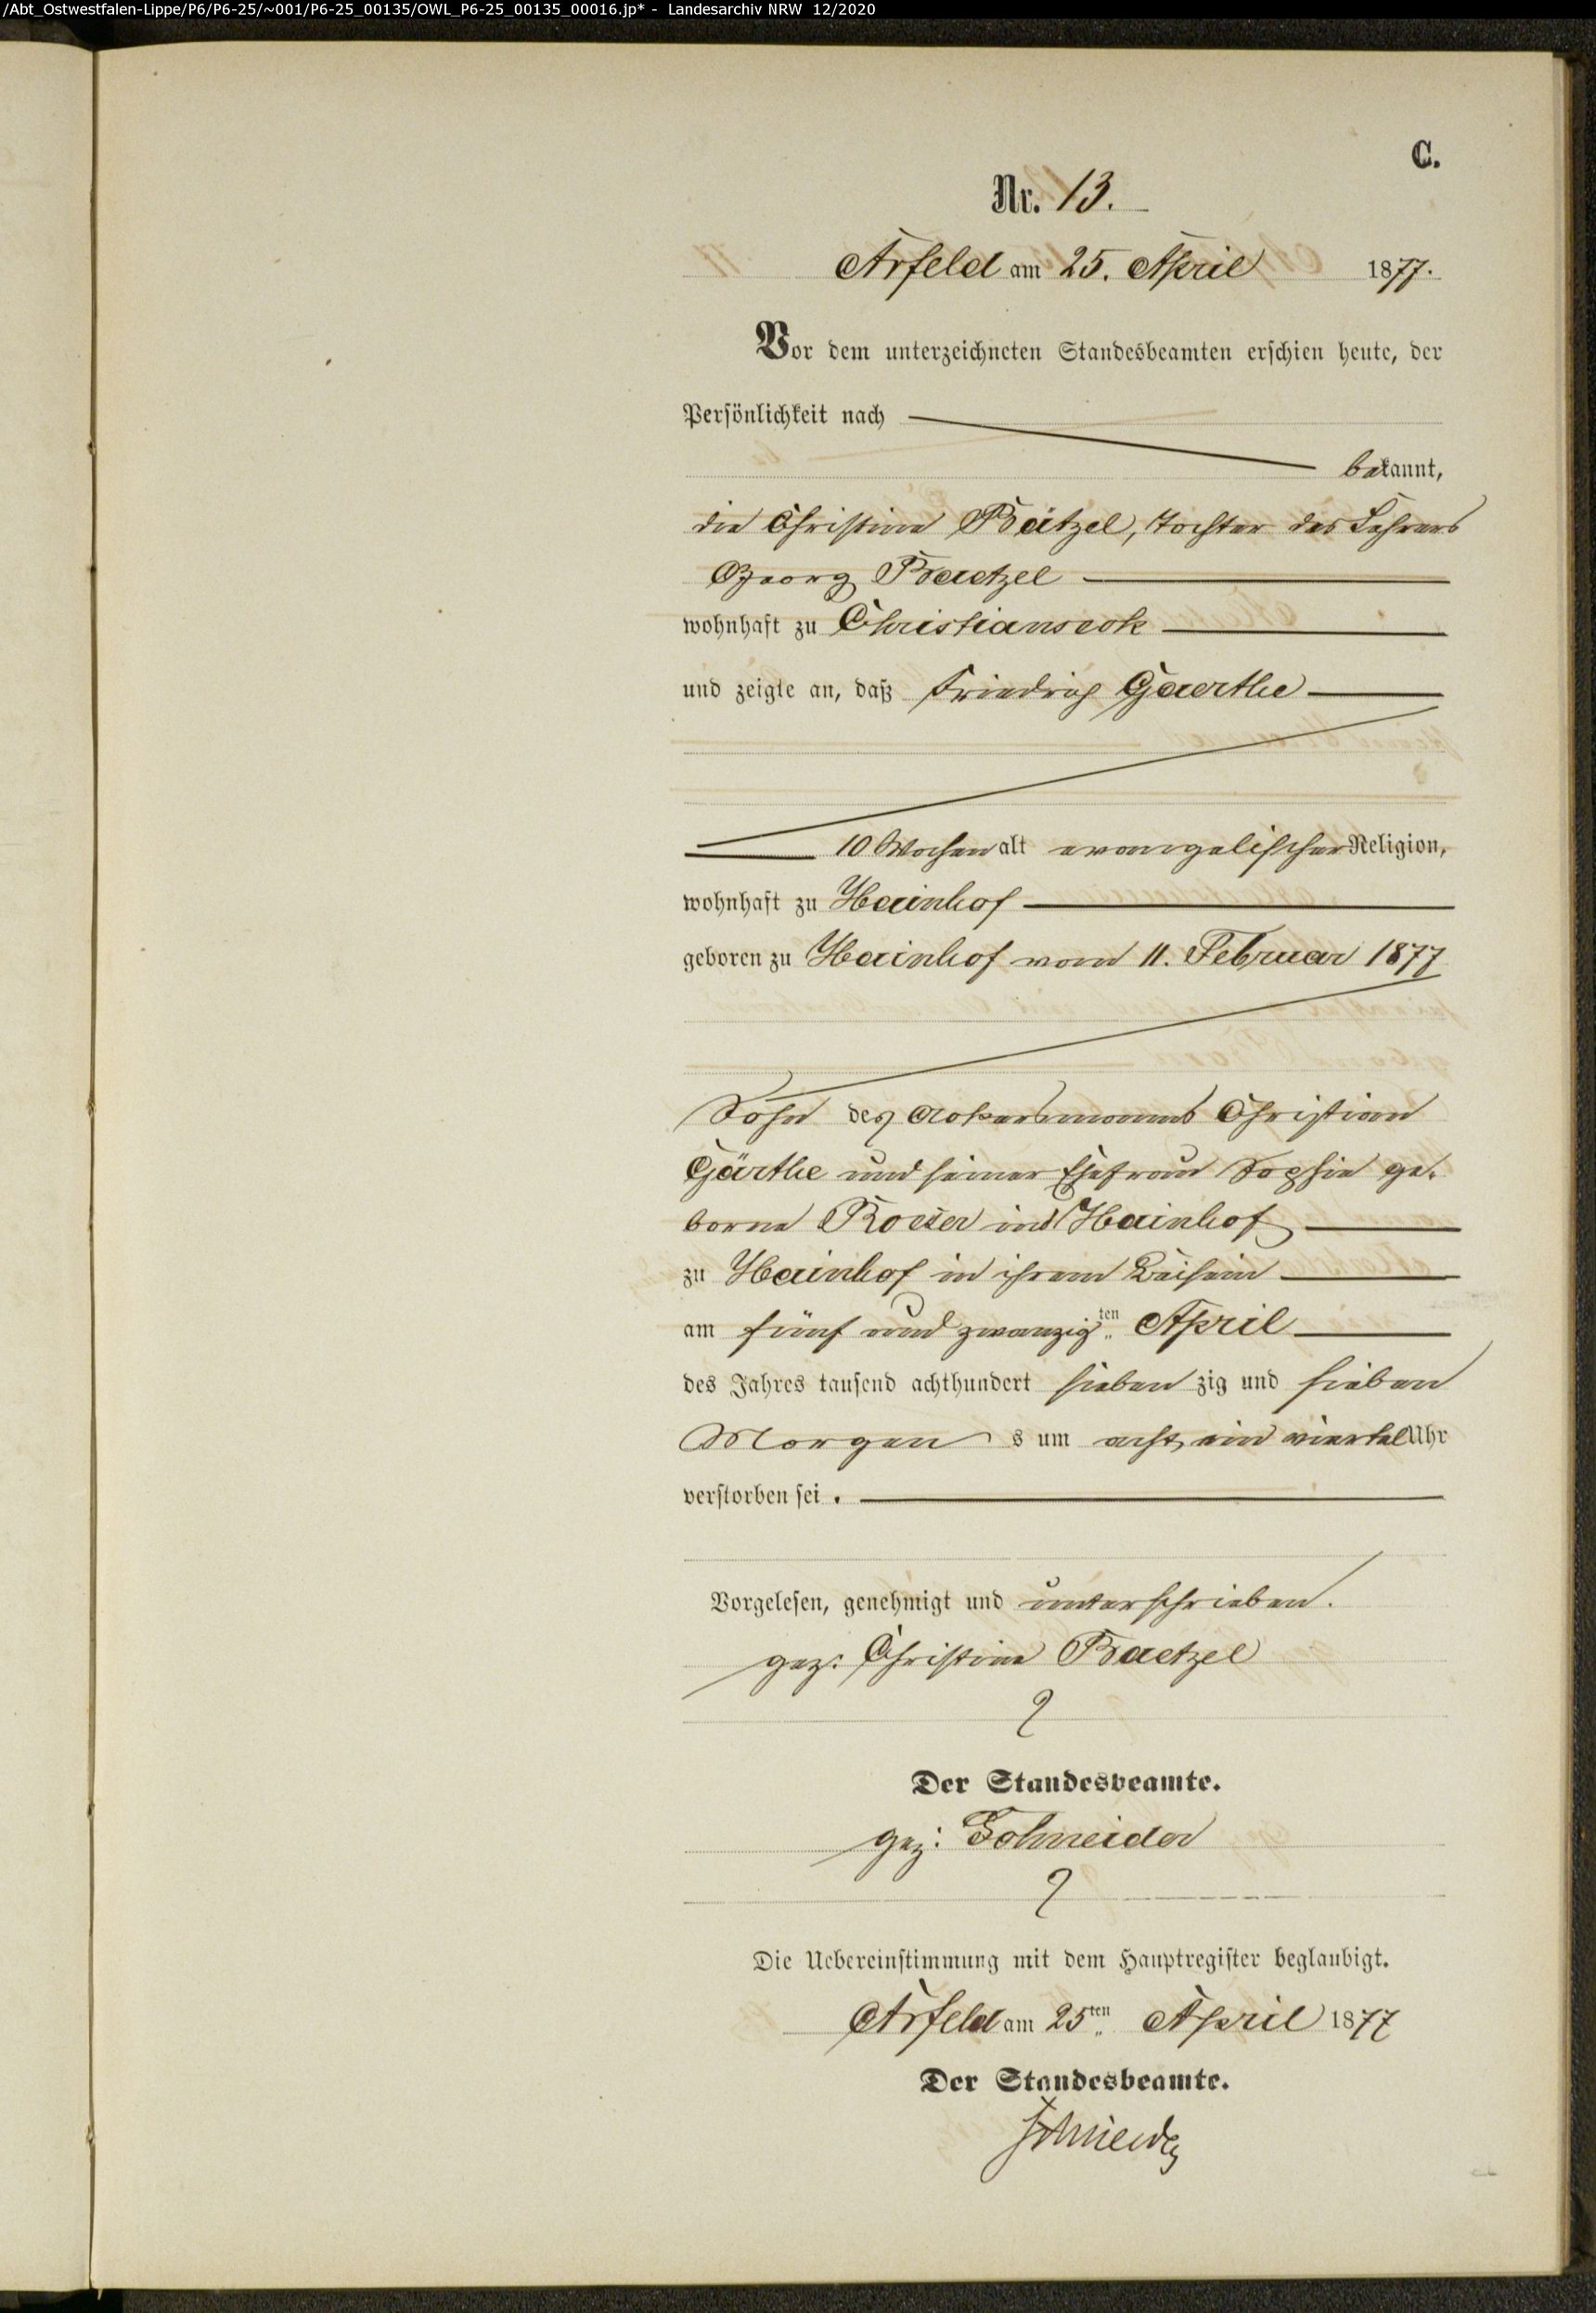 /Abt_Ostwestfalen-Lippe/P6/P6-25/~001/P6-25_00135/OWL_P6-25_00135_00016.jp* - Landesarchiv NRW 12/2020
C.
Nr. 13.
Arfeld am 25. April 1877.
Vor dem unterzeichneten Standesbeamten erschien heute, der
Persönlichkeit nach
bekannt,
die Christine Bätzel, Tochter des Lehrers
Georg Baetzel
wohnhaft zu Christianseck
und zeigte an, daß Friedrich Gaerthe
10 Wochen alt evangelischer Religion,
wohnhaft zu Hainhof
geboren zu Hainhof vom 11. Februar 1877
Sohn des Ackersmanns Christian
Gärthe und seiner Ehefrau Sophie ge-
borne in Hainhof
zu Hainhof in ihrem Beisein
am fünf und zwanzigten April
des Jahres tausend achthundert sieben zig und sieben
Morgen s um acht ein viertel Uhr
verstorben sei.
Vorgelesen, genehmigt und unterschrieben.
gez: Christine Baetzel
Der Standesbeamte.
gez: Schneider
Die Uebereinstimmung mit dem Hauptregister beglaubigt.
Arfeld am 25ten April 1877
Der Standesbeamte.
Schneider